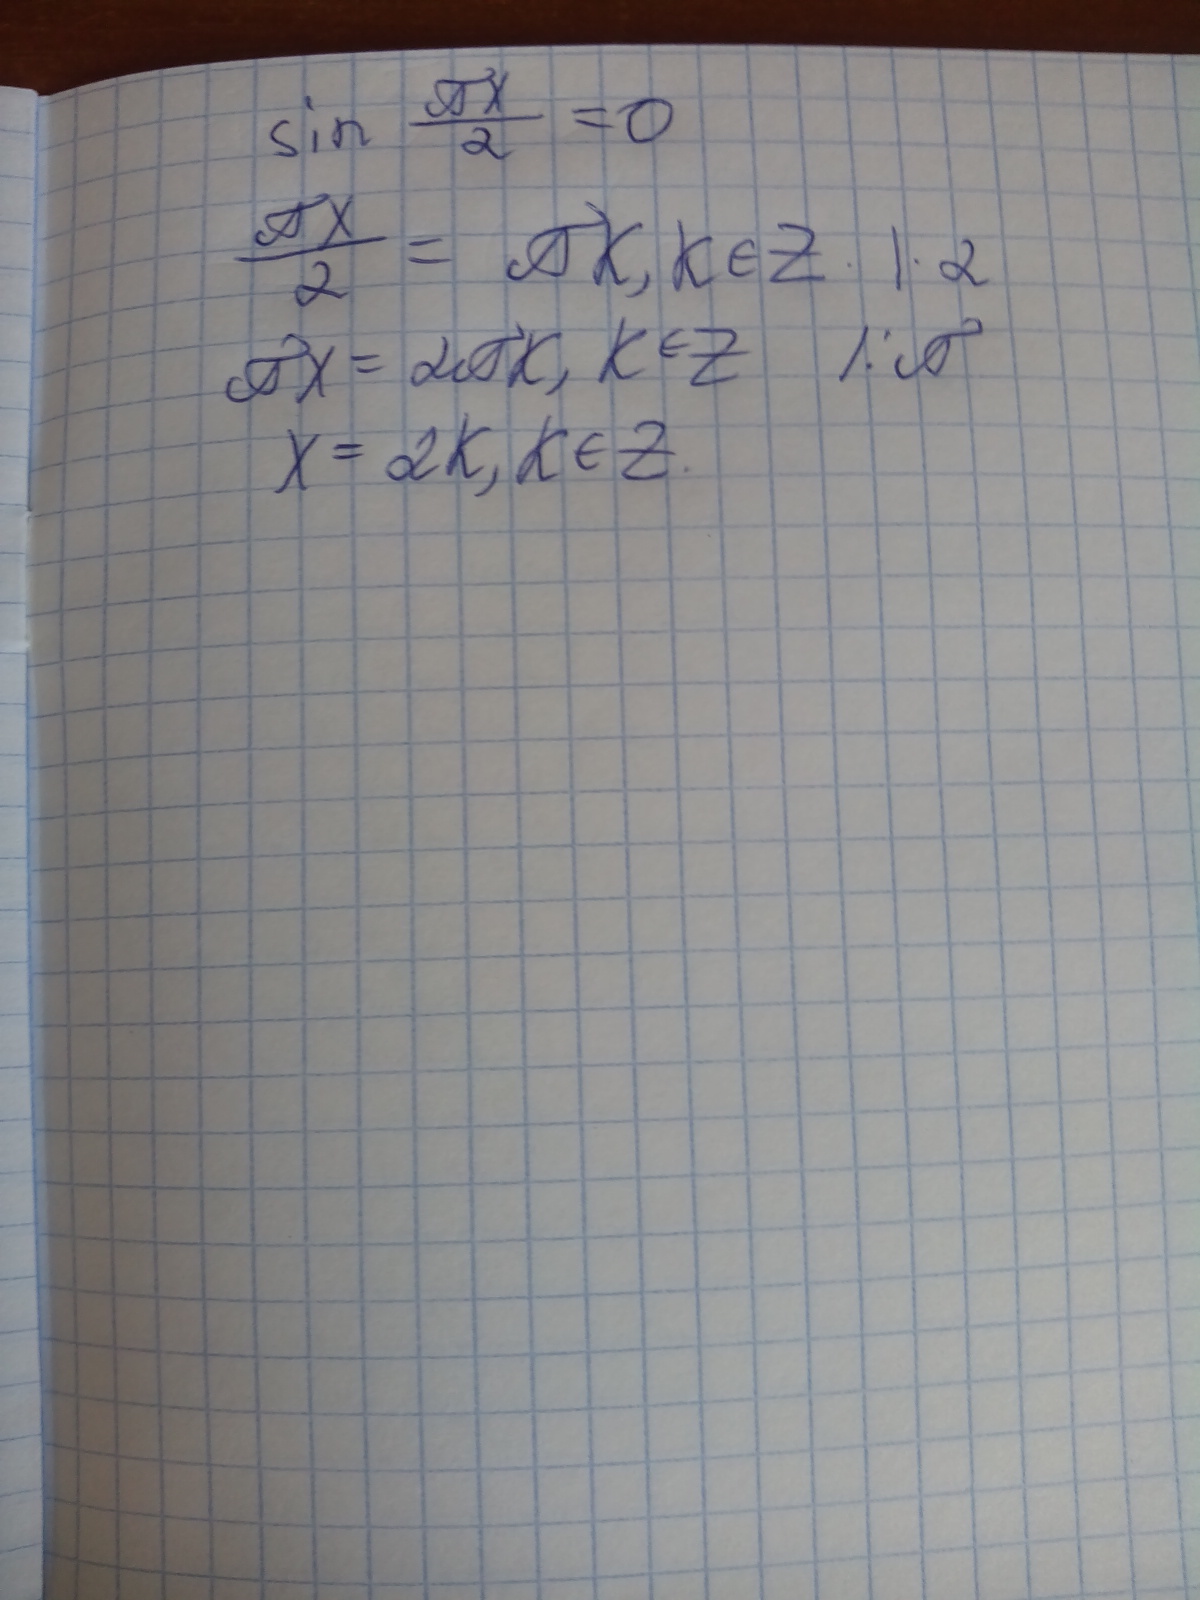 sin πx/2 = 0
πx/2 = πk, k ∈ Z. |· 2
πx = 2πk, k ∈ Z |: π
x = 2k, k ∈ Z.